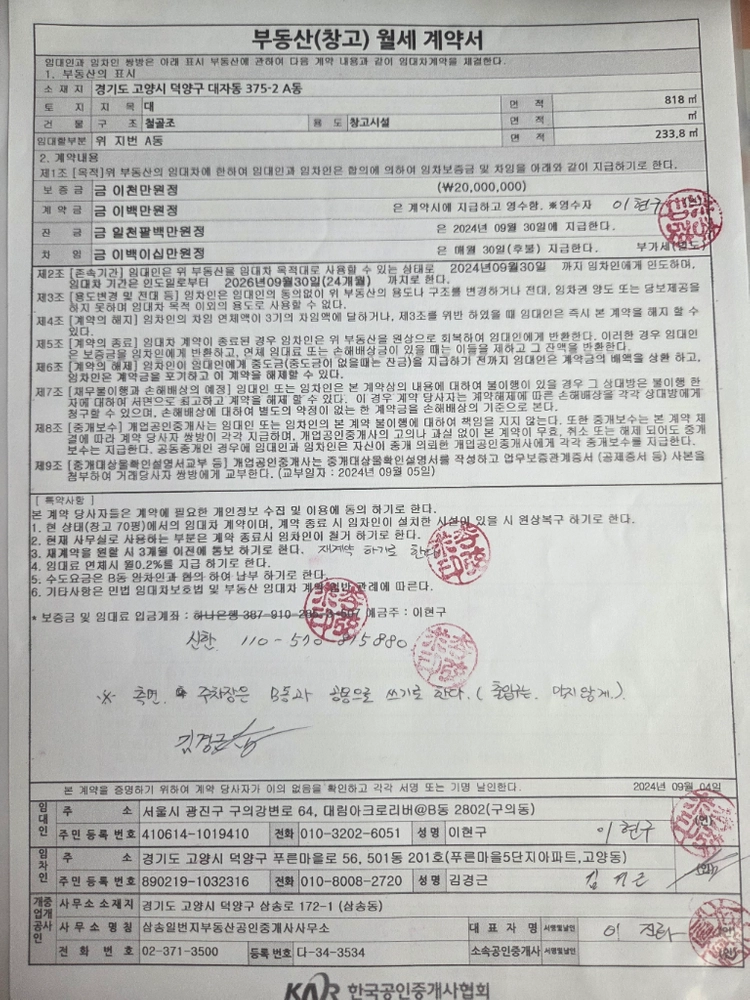 부동산(창고) 월세 계약서
임대인과 임차인 쌍방은 아래 표시 부동산에 관하여 다음 계약 내용과 같이 임대차계약을 체결한다.
1. 부동산의 표시
소 재 지 경기도 고양시 덕양구 대자동 375-2 A동
토 지 지 목 대 면 적 818 ㎡
건 물 구 조 철골조 용 도 창고시설 면 적 ㎡
임대할부분 위 지번 A동 면 적 233.8 ㎡
2. 계약내용
제1조 [목적]위 부동산의 임대차에 한하여 임대인과 임차인은 합의에 의하여 임차보증금 및 차임을 아래와 같이 지급하기로 한다.
보 증 금 금 이천만원정 (₩20,000,000)
계 약 금 금 이백만원정 은 계약시에 지급하고 영수함. ※영수자 이현구
잔 금 금 일천팔백만원정 은 2024년 09월 30일에 지급한다.
차 임 금 이백이십만원정 은 매월 30일(후불) 지급한다. 부가세(별도)
제2조 [존속기간] 임대인은 위 부동산을 임대차 목적대로 사용할 수 있는 상태로 2024년09월30일 까지 임차인에게 인도하며,
임대차 기간은 인도일로부터 2026년09월30일(24개월) 까지로 한다.
제3조 [용도변경 및 전대 등] 임차인은 임대인의 동의없이 위 부동산의 용도나 구조를 변경하거나 전대, 임차권 양도 또는 담보제공을
하지 못하며 임대차 목적 이외의 용도로 사용할 수 없다.
제4조 [계약의 해지] 임차인의 차임 연체액이 3기의 차임액에 달하거나, 제3조를 위반 하였을 때 임대인은 즉시 본 계약을 해지 할 수
있다.
제5조 [계약의 종료] 임대차 계약이 종료된 경우 임차인은 위 부동산을 원상으로 회복하여 임대인에게 반환한다. 이러한 경우 임대인
은 보증금을 임차인에게 반환하고, 연체 임대료 또는 손해배상금이 있을 때는 이들을 제하고 그 잔액을 반환한다.
제6조 [계약의 해제] 임차인이 임대인에게 중도금(중도금이 없을때는 잔금)을 지급하기 전까지 임대인은 계약금의 배액을 상환 하고,
임차인은 계약금을 포기하고 이 계약을 해제할 수 있다.
제7조 [채무불이행과 손해배상의 예정] 임대인 또는 임차인은 본 계약상의 내용에 대하여 불이행이 있을 경우 그 상대방은 불이행 한
자에 대하여 서면으로 최고하고 계약을 해제 할 수 있다. 이 경우 계약 당사자는 계약해제에 따른 손해배상을 각각 상대방에게
청구할 수 있으며, 손해배상에 대하여 별도의 약정이 없는 한 계약금을 손해배상의 기준으로 본다.
제8조 [중개보수] 개업공인중개사는 임대인 또는 임차인의 본 계약 불이행에 대하여 책임을 지지 않는다. 또한 중개보수는 본 계약 체
결에 따라 계약 당사자 쌍방이 각각 지급하며, 개업공인중개사의 고의나 과실 없이 본 계약이 무효, 취소 또는 해제 되어도 중개
보수는 지급한다. 공동중개인 경우에 임대인과 임차인은 자신이 중개 의뢰한 개업공인중개사에게 각각 중개보수를 지급한다.
제9조 [중개대상물확인설명서교부 등] 개업공인중개사는 중개대상물확인설명서를 작성하고 업무보증관계증서 (공제증서 등) 사본을
첨부하여 거래당사자 쌍방에게 교부한다. (교부일자 : 2024년 09월 05일)
[ 특약사항 ]
본 계약 당사자들은 계약에 필요한 개인정보 수집 및 이용에 동의 하기로 한다.
1. 현 상태(창고 70평)에서의 임대차 계약이며, 계약 종료 시 임차인이 설치한 시설이 있을 시 원상복구 하기로 한다.
2. 현재 사무실로 사용하는 부분은 계약 종료시 임차인이 철거 하기로 한다.
3. 재계약을 원할 시 3개월 이전에 통보 하기로 한다. 재계약 하기로 한다
4. 임대료 연체시 월0.2%를 지급 하기로 한다.
5. 수도요금은 B동 임차인과 협의 하여 납부 하기로 한다.
6. 기타사항은 민법 임대차보호법 및 부동산 임대차 계약 일반 관례에 따른다.
* 보증금 및 임대료 입금계좌 : 하나은행 387-910- 예금주 : 이현구
신한 110-570-875880
※ 측면 주차장은 B동과 공용으로 쓰기로 한다. (출입구는 막지않게.)
김경근
본 계약을 증명하기 위하여 계약 당사자가 이의 없음을 확인하고 각각 서명 또는 기명 날인한다. 2024년 09월 04일
임대인 주 소 서울시 광진구 구의강변로 64, 대림아크로리버@B동 2802(구의동)
주민 등록 번호 410614-1019410 전화 010-3202-6051 성명 이현구 이현구 (인)
임차인 주 소 경기도 고양시 덕양구 푸른마을로 56, 501동 201호(푸른마을5단지아파트,고양동)
주민 등록 번호 890219-1032316 전화 010-8008-2720 성명 김경근 (인)
개업공인중개사 사무소 소재지 경기도 고양시 덕양구 삼송로 172-1 (삼송동)
사무소 명칭 삼송일번지부동산공인중개사사무소 대 표 자 명 서명및날인
전 화 번 호 02-371-3500 등록 번호 다-34-3534 소속공인중개사 서명및날인
KAR 한국공인중개사협회